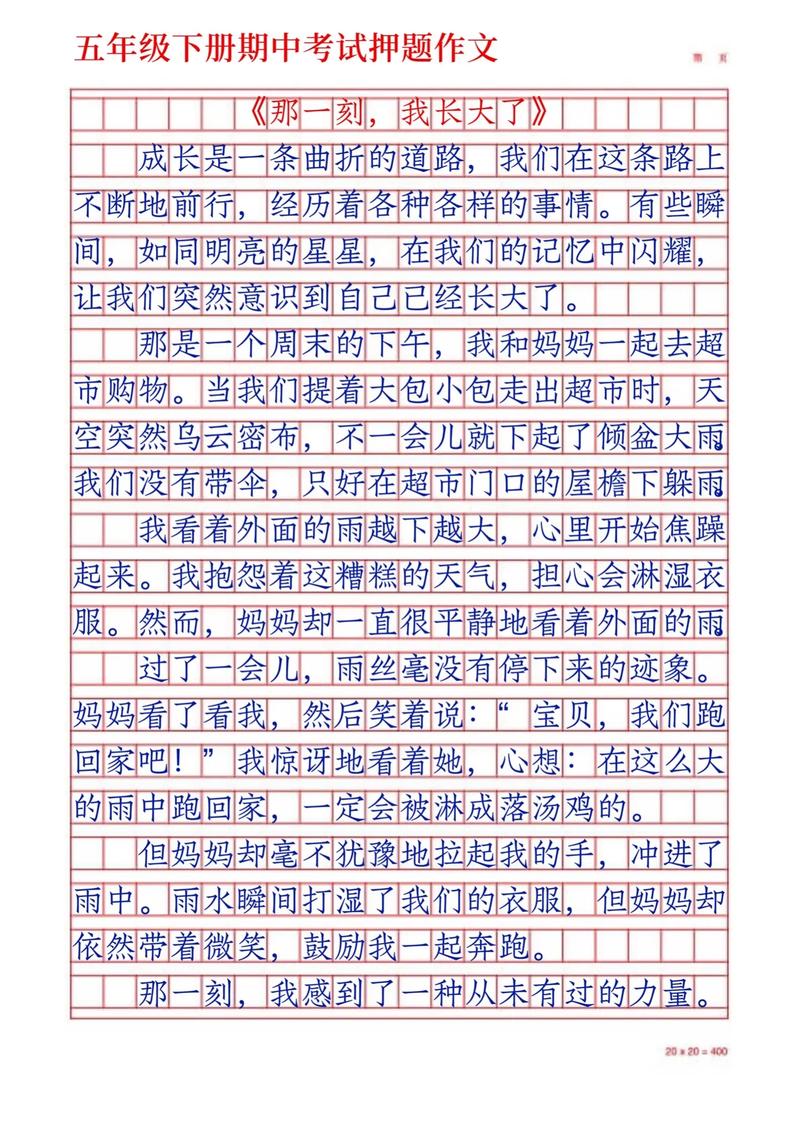 五年级下册期中考试押题作文
第 页
《那一刻，我长大了》
成长是一条曲折的道路，我们在这条路上
不断地前行，经历着各种各样的事情。有些瞬
间，如同明亮的星星，在我们的记忆中闪耀，
让我们突然意识到自己已经长大了。
那是一个周末的下午，我和妈妈一起去超
市购物。当我们提着大包小包走出超市时，天
空突然乌云密布，不一会儿就下起了倾盆大雨。
我们没有带伞，只好在超市门口的屋檐下躲雨。
我看着外面的雨越下越大，心里开始焦躁
起来。我抱怨着这糟糕的天气，担心会淋湿衣
服。然而，妈妈却一直很平静地看着外面的雨。
过了一会儿，雨丝毫没有停下来的迹象。
妈妈看了看我，然后笑着说：“宝贝，我们跑
回家吧！”我惊讶地看着她，心想：在这么大
的雨中跑回家，一定会被淋成落汤鸡的。
但妈妈却毫不犹豫地拉起我的手，冲进了
雨中。雨水瞬间打湿了我们的衣服，但妈妈却
依然带着微笑，鼓励我一起奔跑。
那一刻，我感到了一种从未有过的力量。
20 x 20 = 400